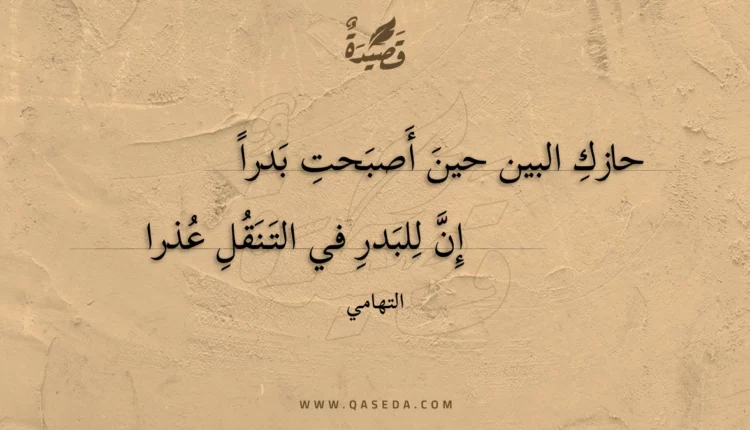 قَصِيدَةٌ
حازكِ البين حينَ أَصبَحتِ بَدراً
إِنَّ لِلبَدرِ في التَنَقُلِ عُذرا
التهامي
WWW.QASEDA.COM